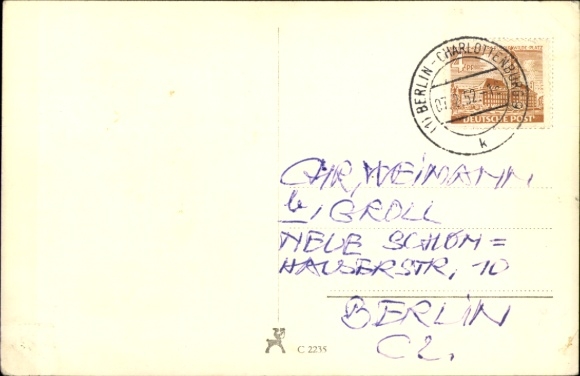 (1) BERLIN-CHARLOTTENBURG
52
k
DEUTSCHE POST
CHR. WEIMANN
b/ GROLL
NEUE SCHÖN=
HAUSERSTR, 10
BERLIN
C2.
C 2235